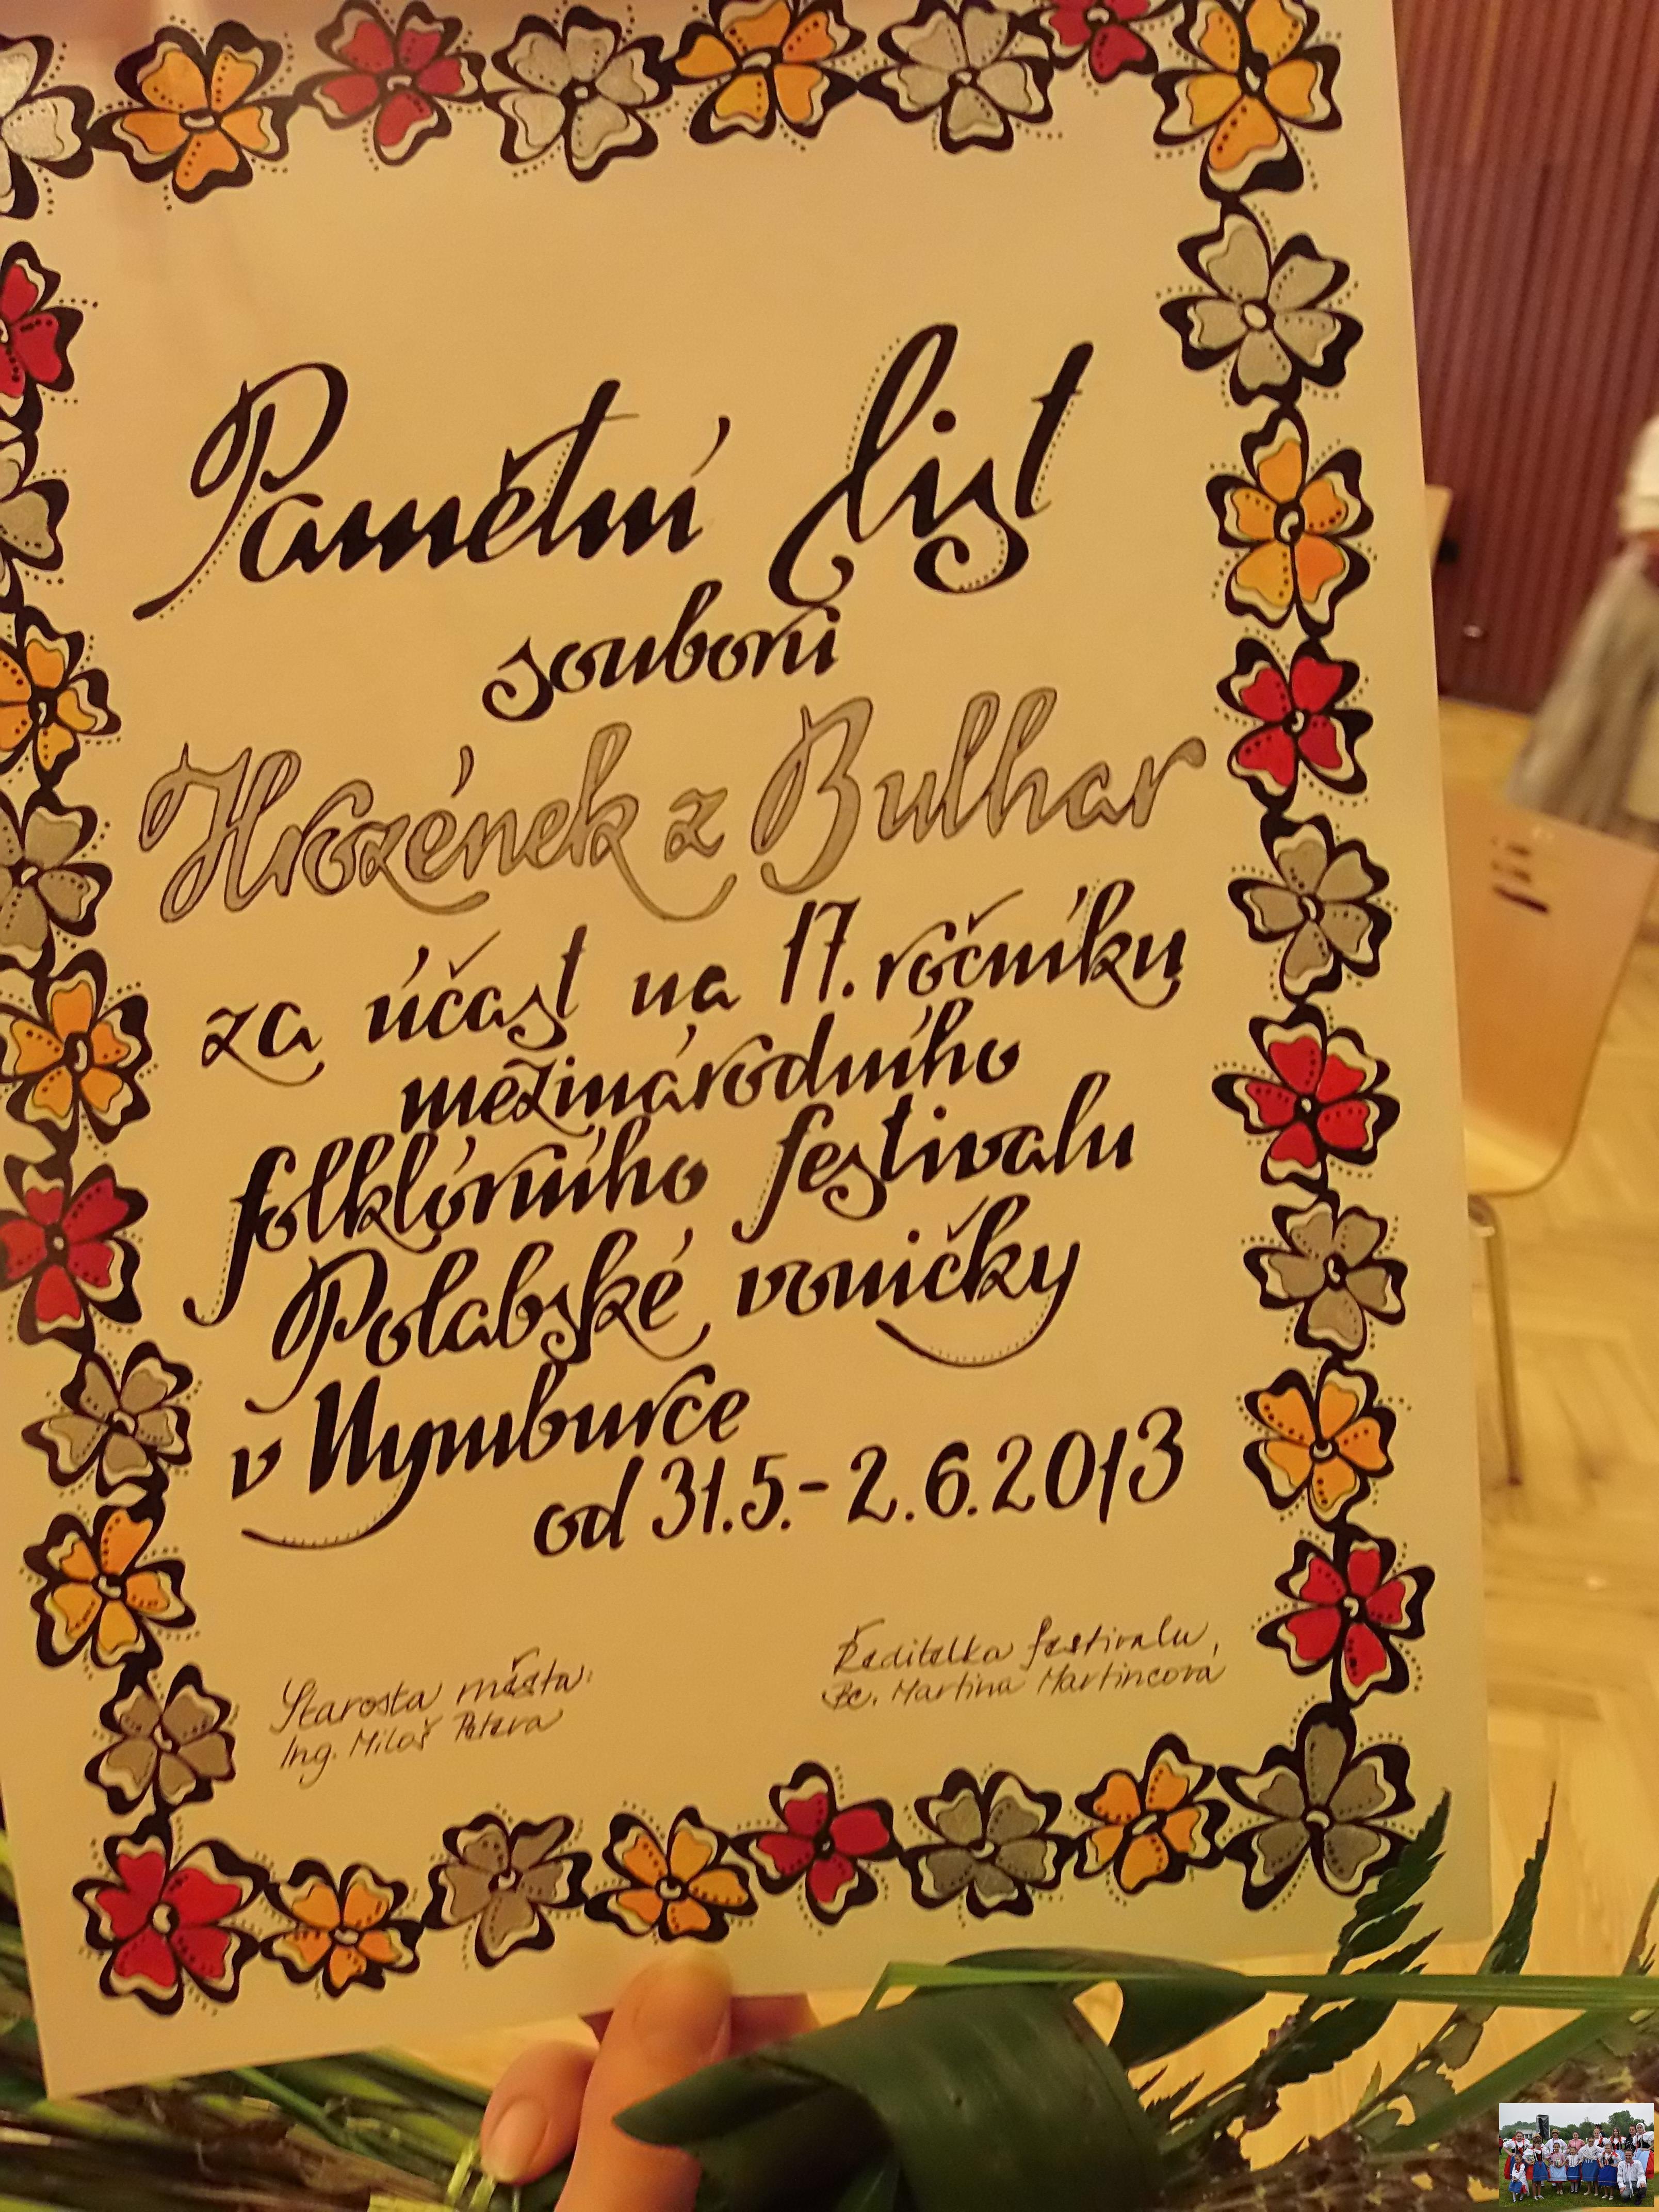 Pamětní list
souboru
Hrozének z Bulhar
za účast na 17. ročníku
mezinárodního
folklórního festivalu
Polabské voničky
v Nymburce
od 31.5.- 2.6.2013
Starosta města:
Ing. Miloš Petera
Ředitelka festivalu,
Bc. Martina Martincová